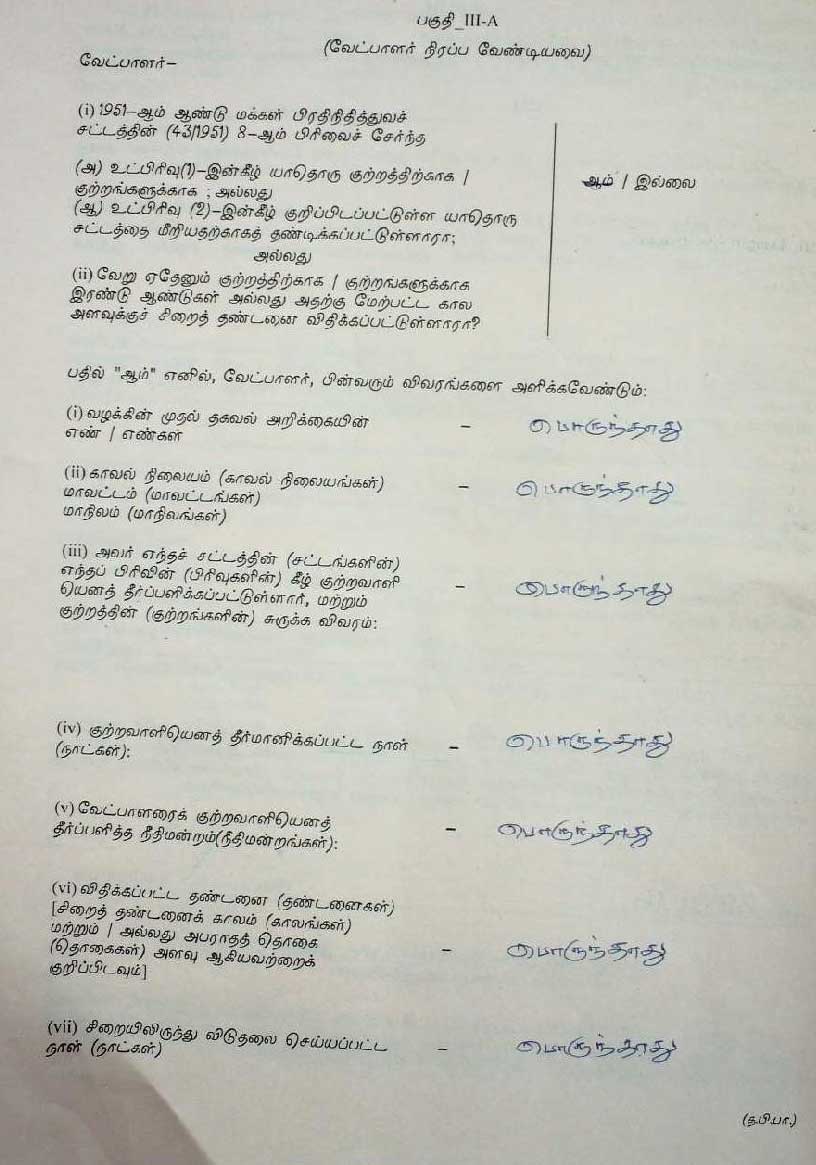 பகுதி_III-A
(வேட்பாளர் நிரப்ப வேண்டியவை)
வேட்பாளர்–
(i) 1951–ஆம் ஆண்டு மக்கள் பிரதிநிதித்துவச்
சட்டத்தின் (43/1951) 8–ஆம் பிரிவைச் சேர்ந்த
(அ) உட்பிரிவு(1)–இன்கீழ் யாதொரு குற்றத்திற்காக /
குற்றங்களுக்காக ; அல்லது
(ஆ) உட்பிரிவு (2)–இன்கீழ் குறிப்பிடப்பட்டுள்ள யாதொரு
சட்டத்தை மீறியதற்காகத் தண்டிக்கப்பட்டுள்ளாரா;
அல்லது
(ii) வேறு ஏதேனும் குற்றத்திற்காக / குற்றங்களுக்காக
இரண்டு ஆண்டுகள் அல்லது அதற்கு மேற்பட்ட கால
அளவுக்குச் சிறைத் தண்டனை விதிக்கப்பட்டுள்ளாரா?
ஆம் / இல்லை
பதில் "ஆம்" எனில், வேட்பாளர், பின்வரும் விவரங்களை அளிக்கவேண்டும்:
(i) வழக்கின் முதல் தகவல் அறிக்கையின் – பொருந்தாது
எண் / எண்கள்
(ii) காவல் நிலையம் (காவல் நிலையங்கள்)
மாவட்டம் (மாவட்டங்கள்) – பொருந்தாது
மாநிலம் (மாநிலங்கள்)
(iii) அவர் எந்தச் சட்டத்தின் (சட்டங்களின்)
எந்தப் பிரிவின் (பிரிவுகளின்) கீழ் குற்றவாளி
யெனத் தீர்ப்பளிக்கப்பட்டுள்ளார், மற்றும் – பொருந்தாது
குற்றத்தின் (குற்றங்களின்) சுருக்க விவரம்:
(iv) குற்றவாளியெனத் தீர்மானிக்கப்பட்ட நாள் – பொருந்தாது
(நாட்கள்):
(v) வேட்பாளரைக் குற்றவாளியெனத்
தீர்ப்பளித்த நீதிமன்றம்(நீதிமன்றங்கள்): – பொருந்தாது
(vi) விதிக்கப்பட்ட தண்டனை (தண்டனைகள்)
[சிறைத் தண்டனைக் காலம் (காலங்கள்)
மற்றும் / அல்லது அபராதத் தொகை
(தொகைகள்) அளவு ஆகியவற்றைக் – பொருந்தாது
குறிப்பிடவும்]
(vii) சிறையிலிருந்து விடுதலை செய்யப்பட்ட
நாள் (நாட்கள்) – பொருந்தாது
(த.பி.பா.)